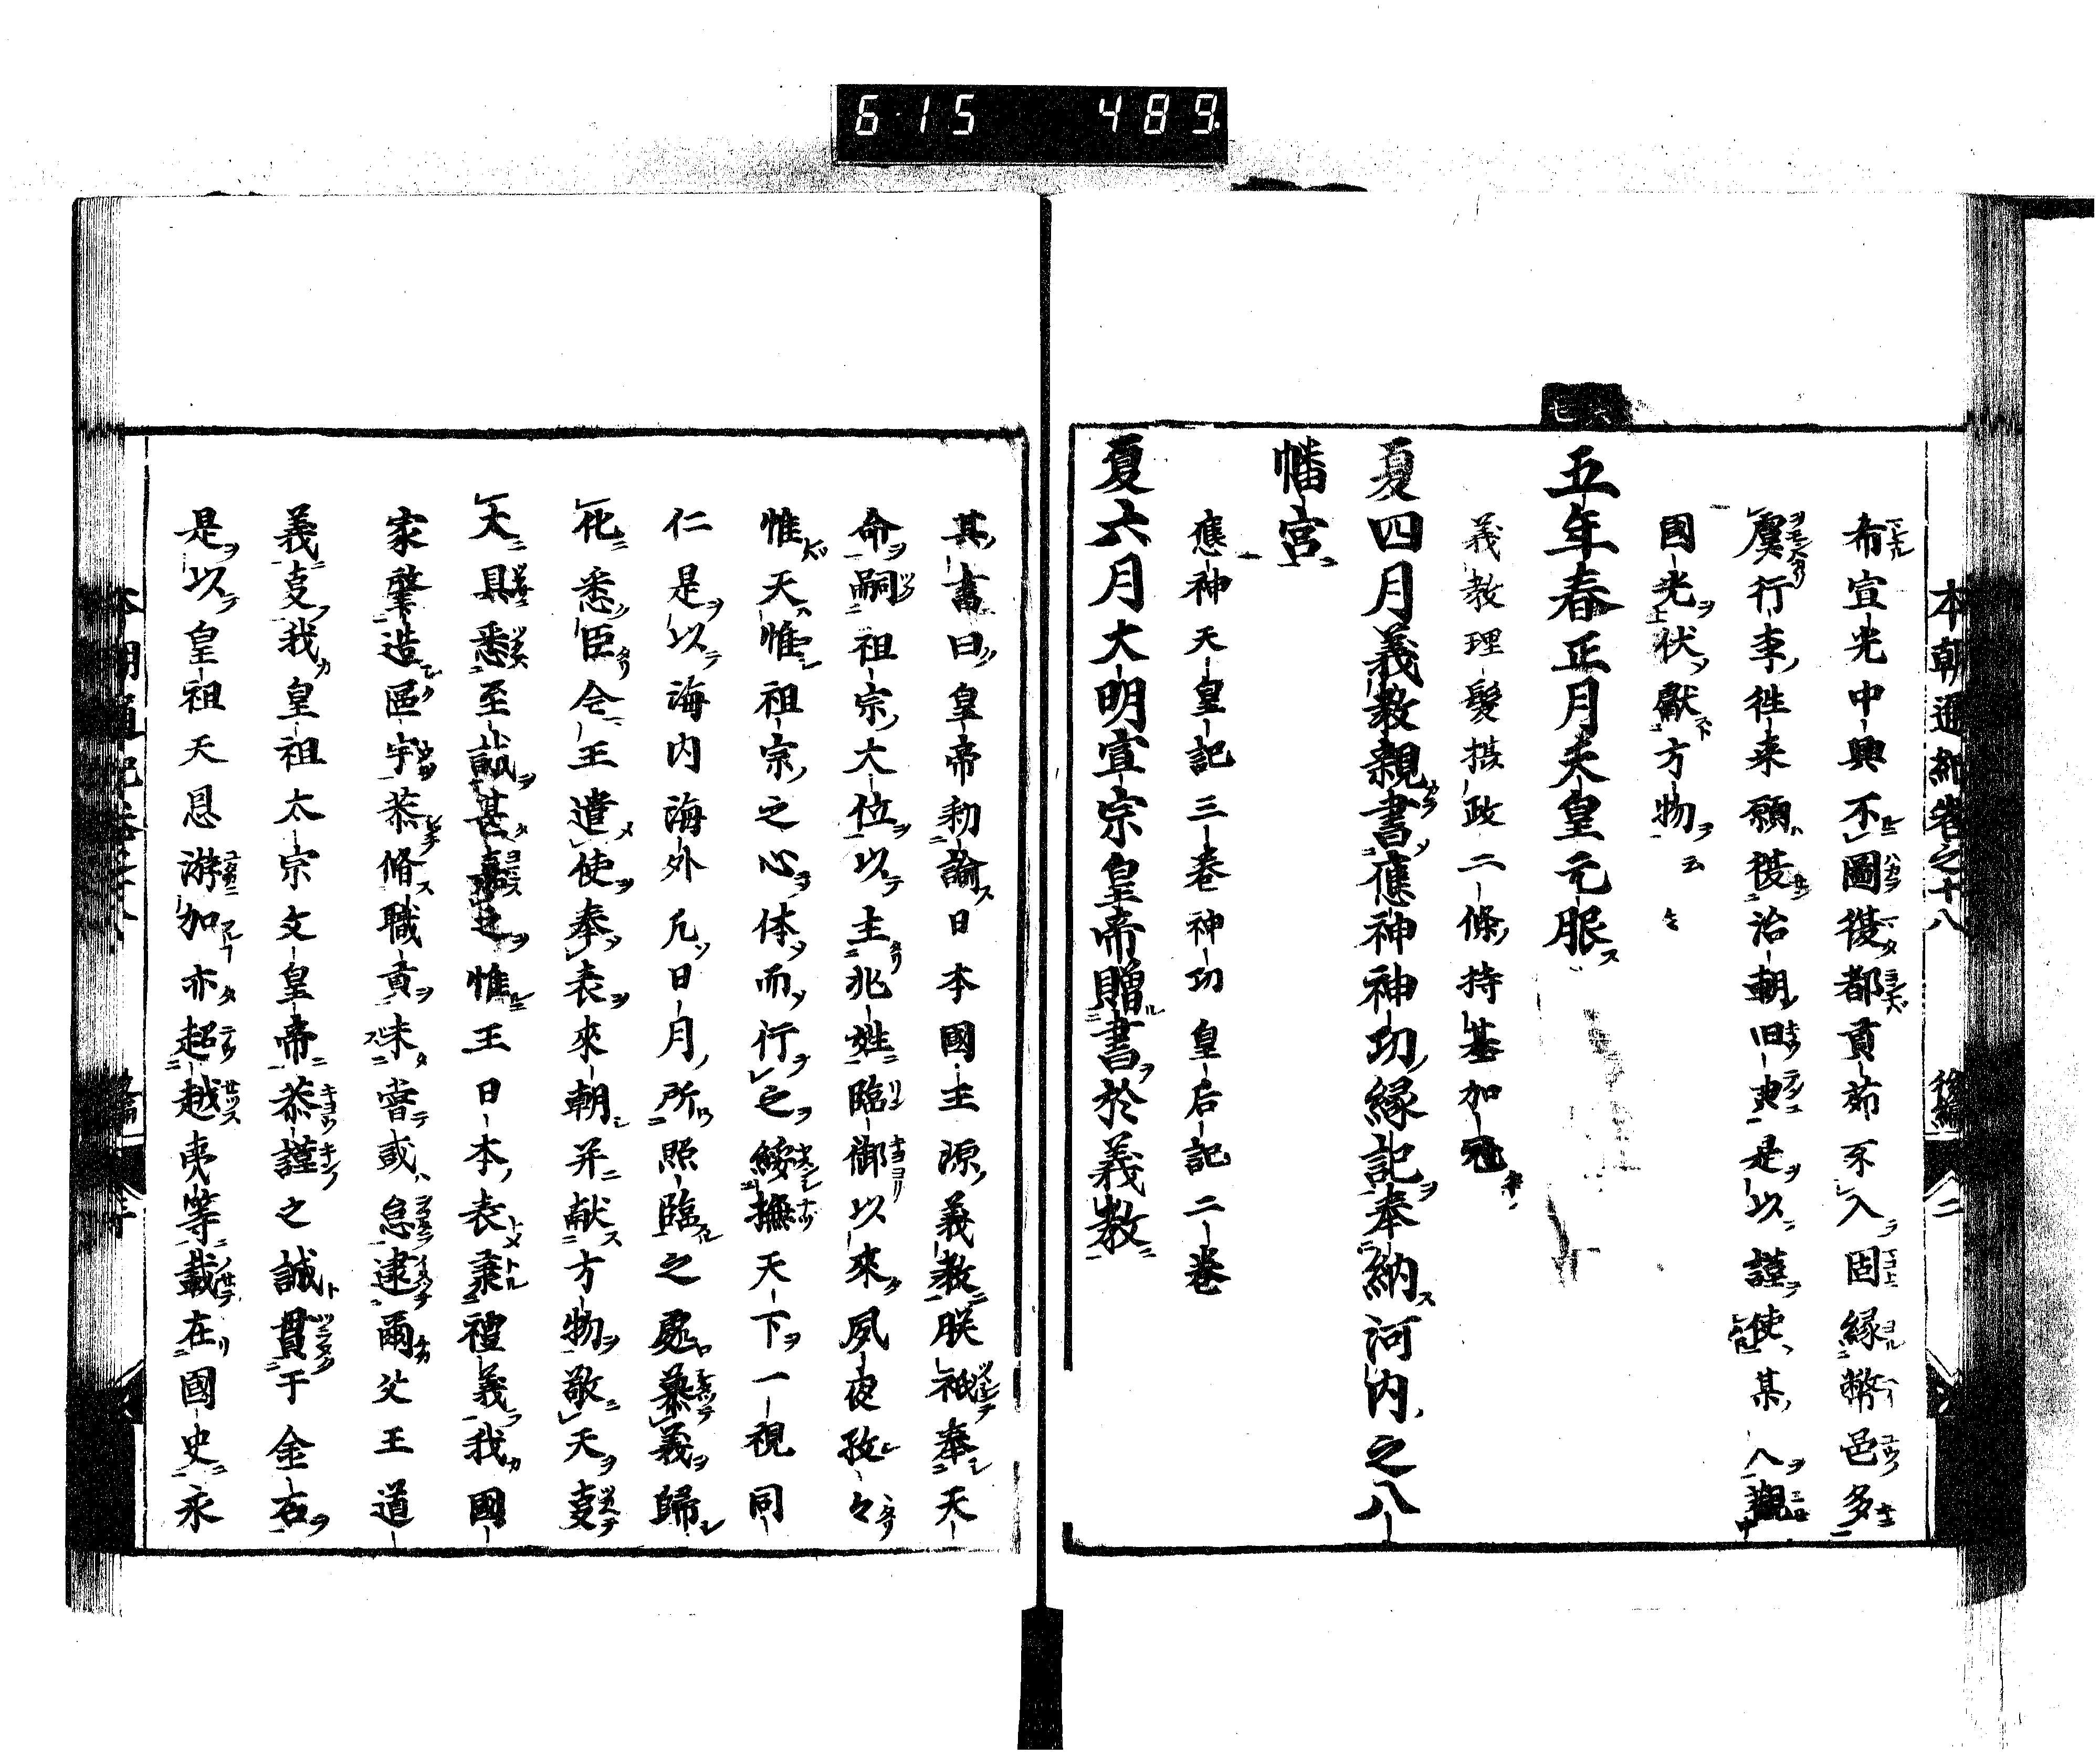 6 15 489
本朝通紀卷之十八 後編 二
希宣光中興不圖復都貢茆不入固緣幣邑多
虞行李往来願復治朝旧典是以謹使某人觀
國光伏獻方物云々
五年春正月天皇元服
義教理髮摂政二條持基加冠
夏四月義教親書應神神功縁記奉納河内之八
幡宮
應神天皇記三卷神功皇后記二卷
夏六月大明宣宗皇帝贈書於義教
其書曰皇帝勅諭日本國王源義教朕祇奉天
命嗣祖宗大位以主兆姓臨御以來夙夜孜々
惟天惟祖宗之心体而行之綏撫天下一視同
仁是以海内海外凡日月所照臨之處慕義歸
化悉臣仝王遣使奉表來朝并献方物敬天
大具悉至誠甚嘉之惟王日本表秉禮義我國
家肇造區宇恭脩職貢未嘗或怠逮爾父王道
義我皇祖太宗文皇帝恭謹之誠貫于金石
是以皇祖天恩游加亦超越夷等載在國史永